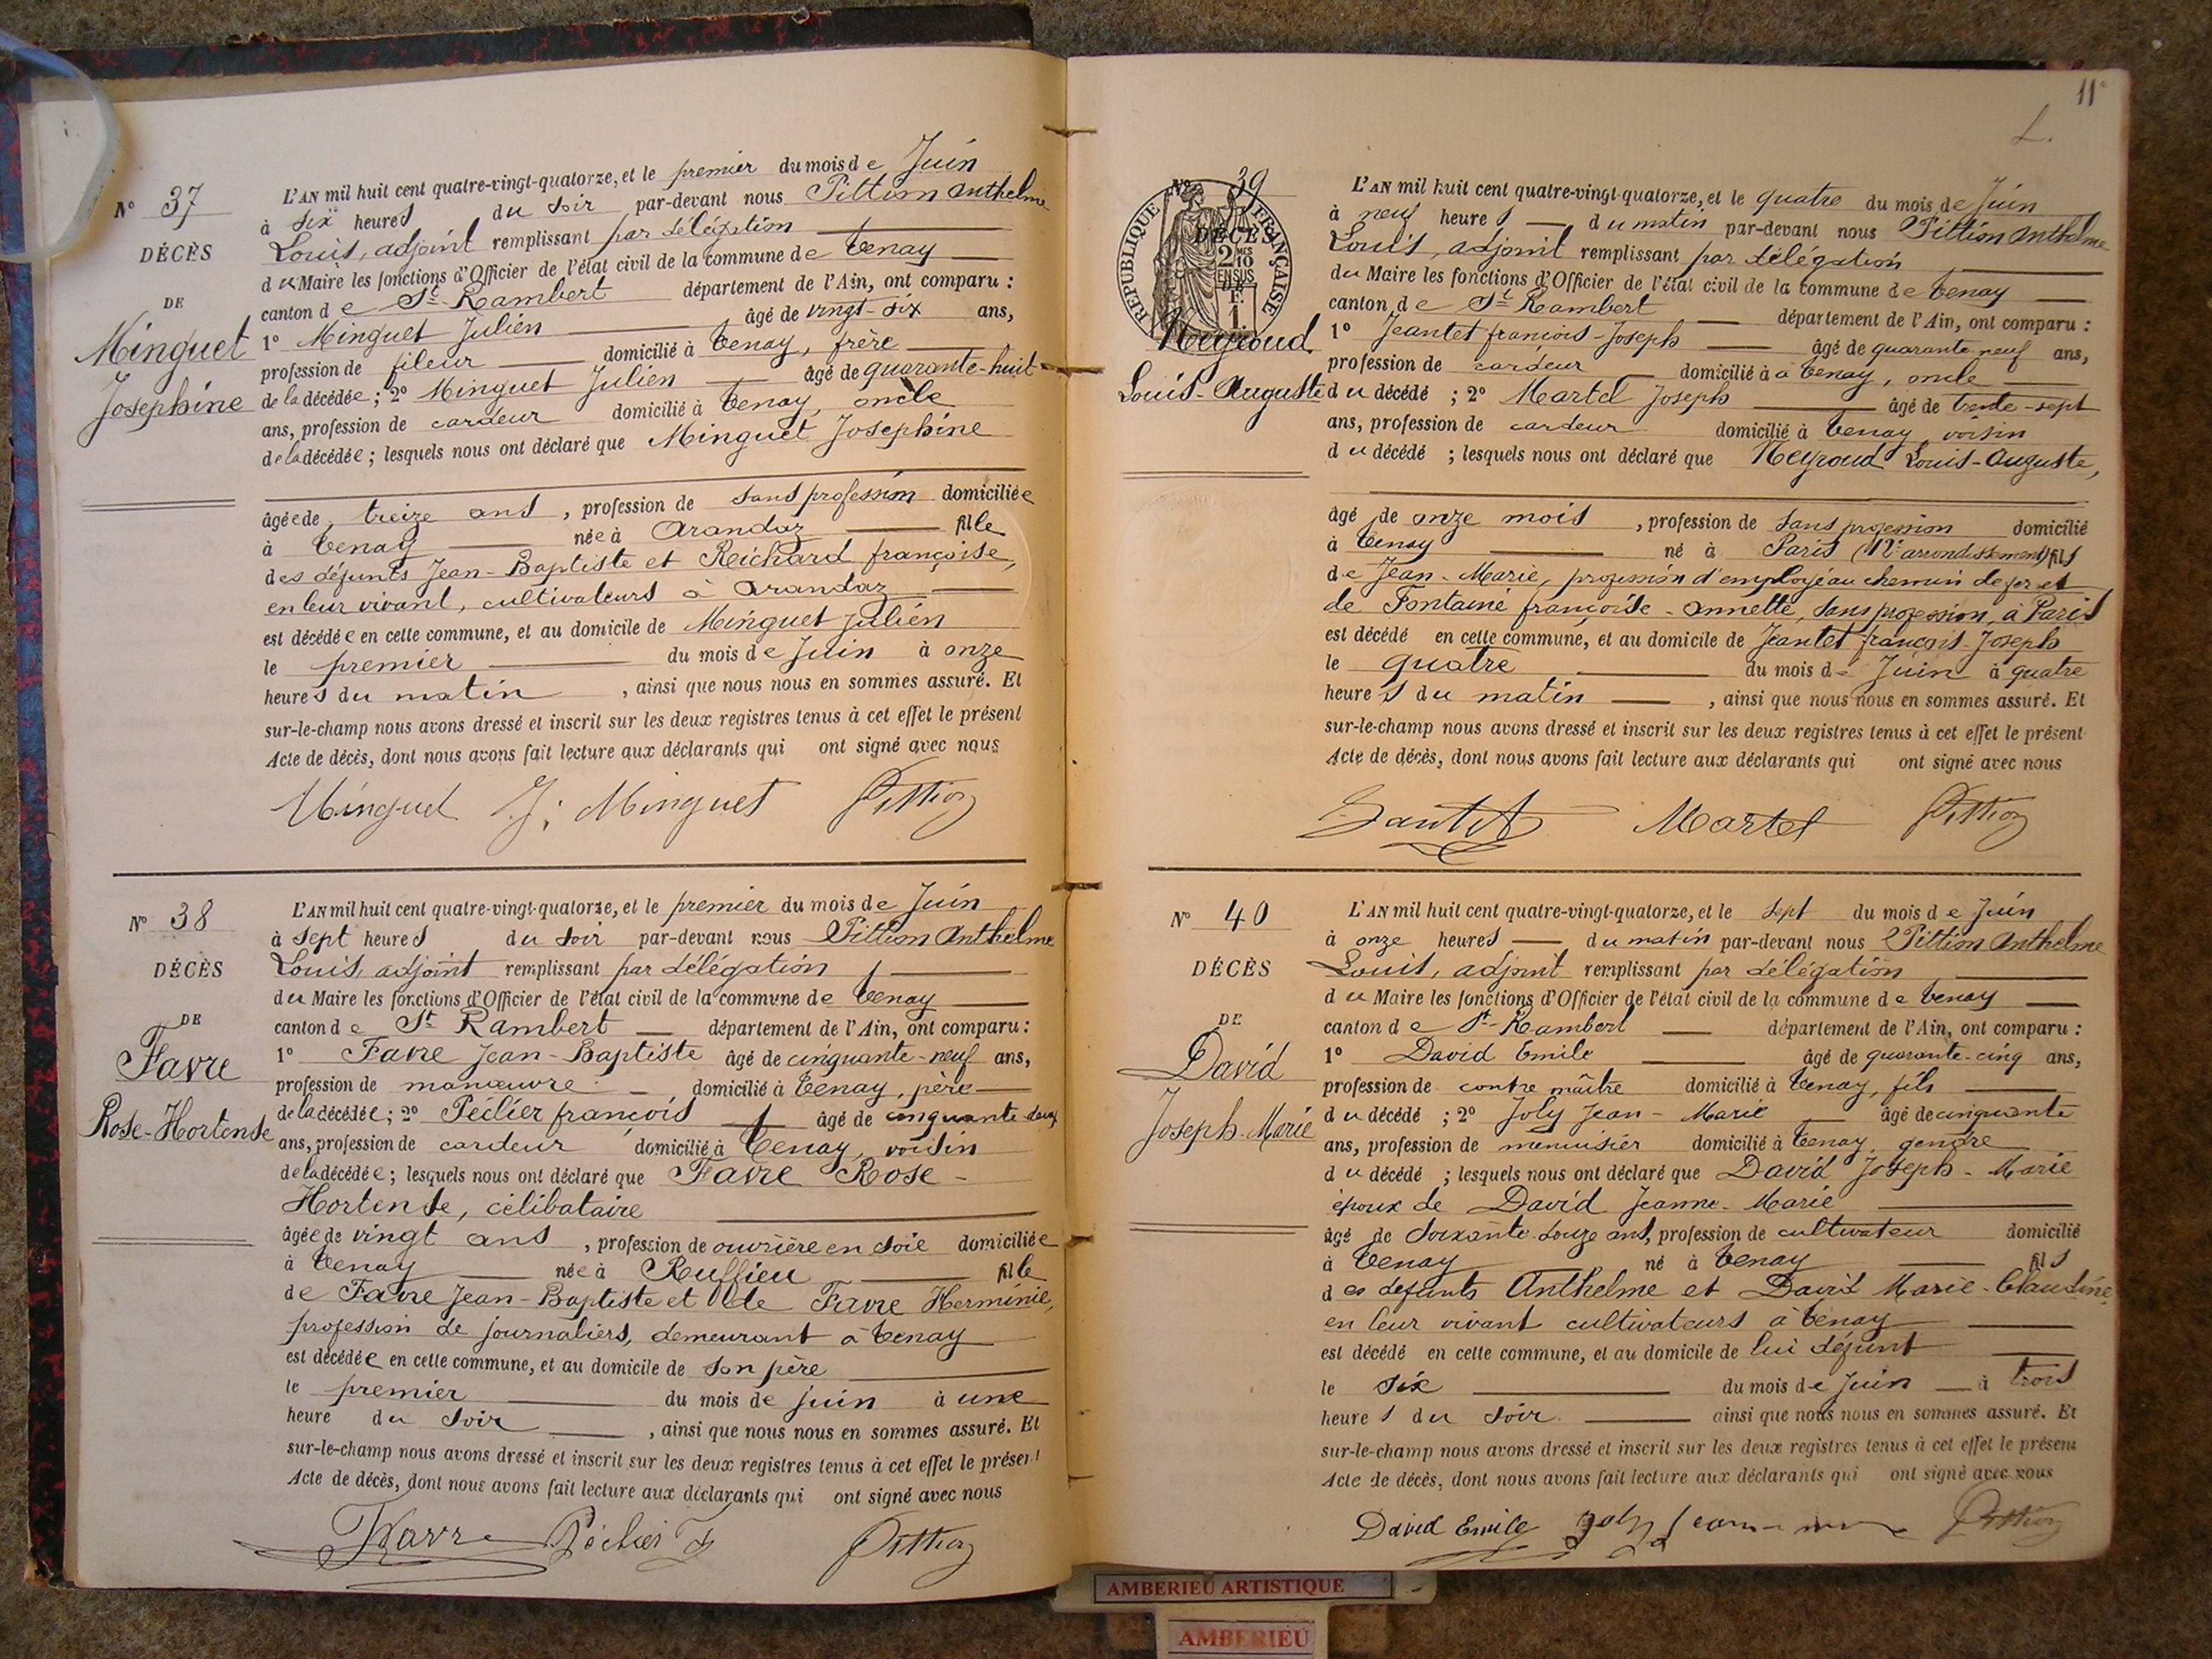 N° 37
DÉCÈS
DE
Minguet
Josephine
L'AN mil huit cent quatre-vingt-quatorze, et le premier du mois de Juin
à six heures du soir par-devant nous Pittion Anthelme
Louis, adjoint remplissant par délégation
du Maire les fonctions d'Officier de l'état civil de la commune de Tenay
canton de St Rambert département de l'Ain, ont comparu :
1° Minguet Julien âgé de vingt-six ans,
profession de fileur domicilié à Tenay, frère
de la décédée ; 2° Minguet Julien âgé de quarante-huit
ans, profession de cardeur domicilié à Tenay, oncle
de la décédée ; lesquels nous ont déclaré que Minguet Josephine
âgée de treize ans, profession de sans profession domiciliée
à Tenay née à Arandaz fille
des défunts Jean-Baptiste et Reichard françoise,
en leur vivant, cultivateurs à Arandaz
est décédée en cette commune, et au domicile de Minguet Julien
le premier du mois de Juin à onze
heures du matin, ainsi que nous nous en sommes assuré. Et
sur-le-champ nous avons dressé et inscrit sur les deux registres tenus à cet effet le présent
Acte de décès, dont nous avons fait lecture aux déclarants qui ont signé avec nous
Minguet J. Minguet Pittion
N° 38
DÉCÈS
DE
Favre
Rose-Hortense
L'AN mil huit cent quatre-vingt-quatorze, et le premier du mois de Juin
à sept heures du soir par-devant nous Pittion Anthelme
Louis, adjoint remplissant par délégation
du Maire les fonctions d'Officier de l'état civil de la commune de Tenay
canton de St Rambert département de l'Ain, ont comparu :
1° Favre Jean-Baptiste âgé de cinquante-neuf ans,
profession de manœuvre domicilié à Tenay, père
de la décédée ; 2° Péclier françois âgé de cinquante-deux
ans, profession de cardeur domicilié à Tenay, voisin
de la décédée ; lesquels nous ont déclaré que Favre Rose-
Hortense, célibataire
âgée de vingt ans, profession de ouvrière en soie domiciliée
à Tenay née à Ruffieu fille
de Favre Jean-Baptiste et de Favre Herminie,
profession de journaliers, demeurant à Tenay
est décédée en cette commune, et au domicile de son père
le premier du mois de juin à une
heure du soir, ainsi que nous nous en sommes assuré. Et
sur-le-champ nous avons dressé et inscrit sur les deux registres tenus à cet effet le présent
Acte de décès, dont nous avons fait lecture aux déclarants qui ont signé avec nous
Favre Péclier F Pittion
11
L.
N° 39
RÉPUBLIQUE FRANÇAISE
DÉCÈS
2/10 EN SUS
DE
F. 1.
Neyroud
Louis-Auguste
L'AN mil huit cent quatre-vingt-quatorze, et le quatre du mois de Juin
à neuf heures du matin par-devant nous Pittion Anthelme
Louis, adjoint remplissant par délégation
du Maire les fonctions d'Officier de l'état civil de la commune de Tenay
canton de St Rambert département de l'Ain, ont comparu :
1° Jeantet françois-Joseph âgé de quarante neuf ans,
profession de cardeur domicilié à a Tenay, oncle
du décédé ; 2° Martel Joseph âgé de trente-sept
ans, profession de cardeur domicilié à Tenay, voisin
du décédé ; lesquels nous ont déclaré que Neyroud Louis-Auguste,
âgé de onze mois, profession de sans profession domicilié
à Tenay né à Paris (12e arrondissement) fils
de Jean-Marie, profession d'employé au chemin de fer et
de Fontaine françoise-Annette, sans profession, à Paris
est décédé en cette commune, et au domicile de Jeantet françois-Joseph
le quatre du mois de Juin à quatre
heures du matin, ainsi que nous nous en sommes assuré. Et
sur-le-champ nous avons dressé et inscrit sur les deux registres tenus à cet effet le présent
Acte de décès, dont nous avons fait lecture aux déclarants qui ont signé avec nous
Jantet Martel Pittion
N° 40
DÉCÈS
DE
David
Joseph-Marie
L'AN mil huit cent quatre-vingt-quatorze, et le sept du mois de Juin
à onze heures du matin par-devant nous Pittion Anthelme
Louis, adjoint remplissant par délégation
du Maire les fonctions d'Officier de l'état civil de la commune de Tenay
canton de St-Rambert département de l'Ain, ont comparu :
1° David Emile âgé de quarante-cinq ans,
profession de contre maître domicilié à Tenay, fils
du décédé ; 2° Joly Jean-Marie âgé de cinquante
ans, profession de menuisier domicilié à Tenay, gendre
du décédé ; lesquels nous ont déclaré que David Joseph-Marie
époux de David Jeanne-Marie
âgé de soixante-douze ans, profession de cultivateur domicilié
à Tenay né à Tenay fils
des défunts Anthelme et David Marie-Claudine,
en leur vivant cultivateurs à Tenay
est décédé en cette commune, et au domicile de lui défunt
le six du mois de Juin à trois
heures du soir ainsi que nous nous en sommes assuré. Et
sur-le-champ nous avons dressé et inscrit sur les deux registres tenus à cet effet le présent
Acte de décès, dont nous avons fait lecture aux déclarants qui ont signé avec nous
David Emile Joly Jean Pittion
AMBERIEU ARTISTIQUE
AMBERIEU